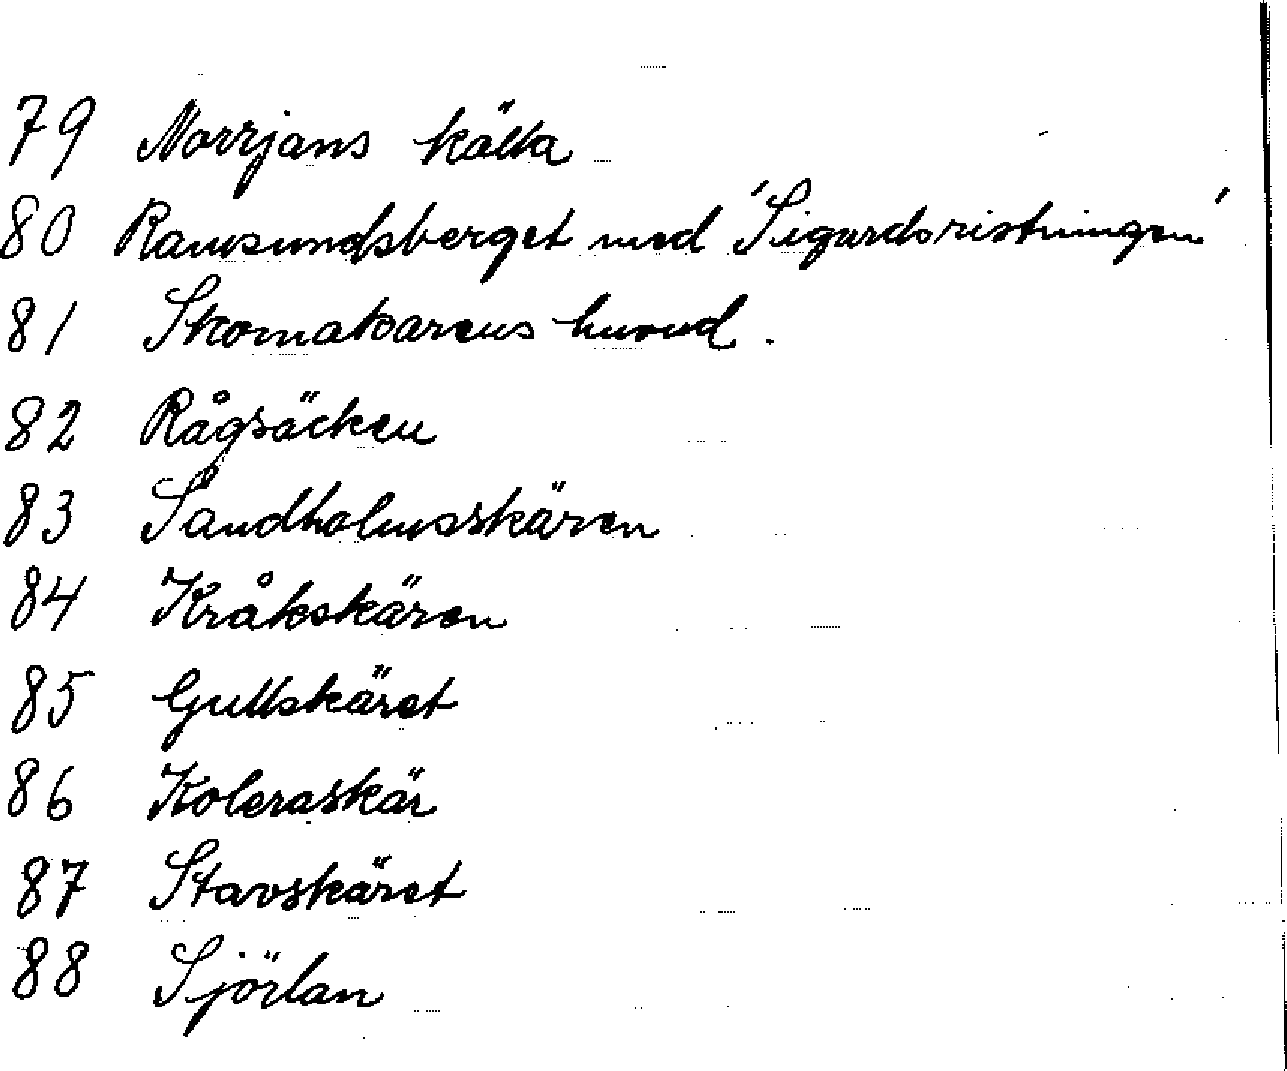 79 Norrjans källa
80 Ramsundsberget med 'Sigurdsristningen'
81 Skomakarens huvud.
82 Rågsäcken
83 Sandholmsskären
84 Kråkskären
85 Gullskäret
86 Koleraskär
87 Stavskäret
88 Sjörlan